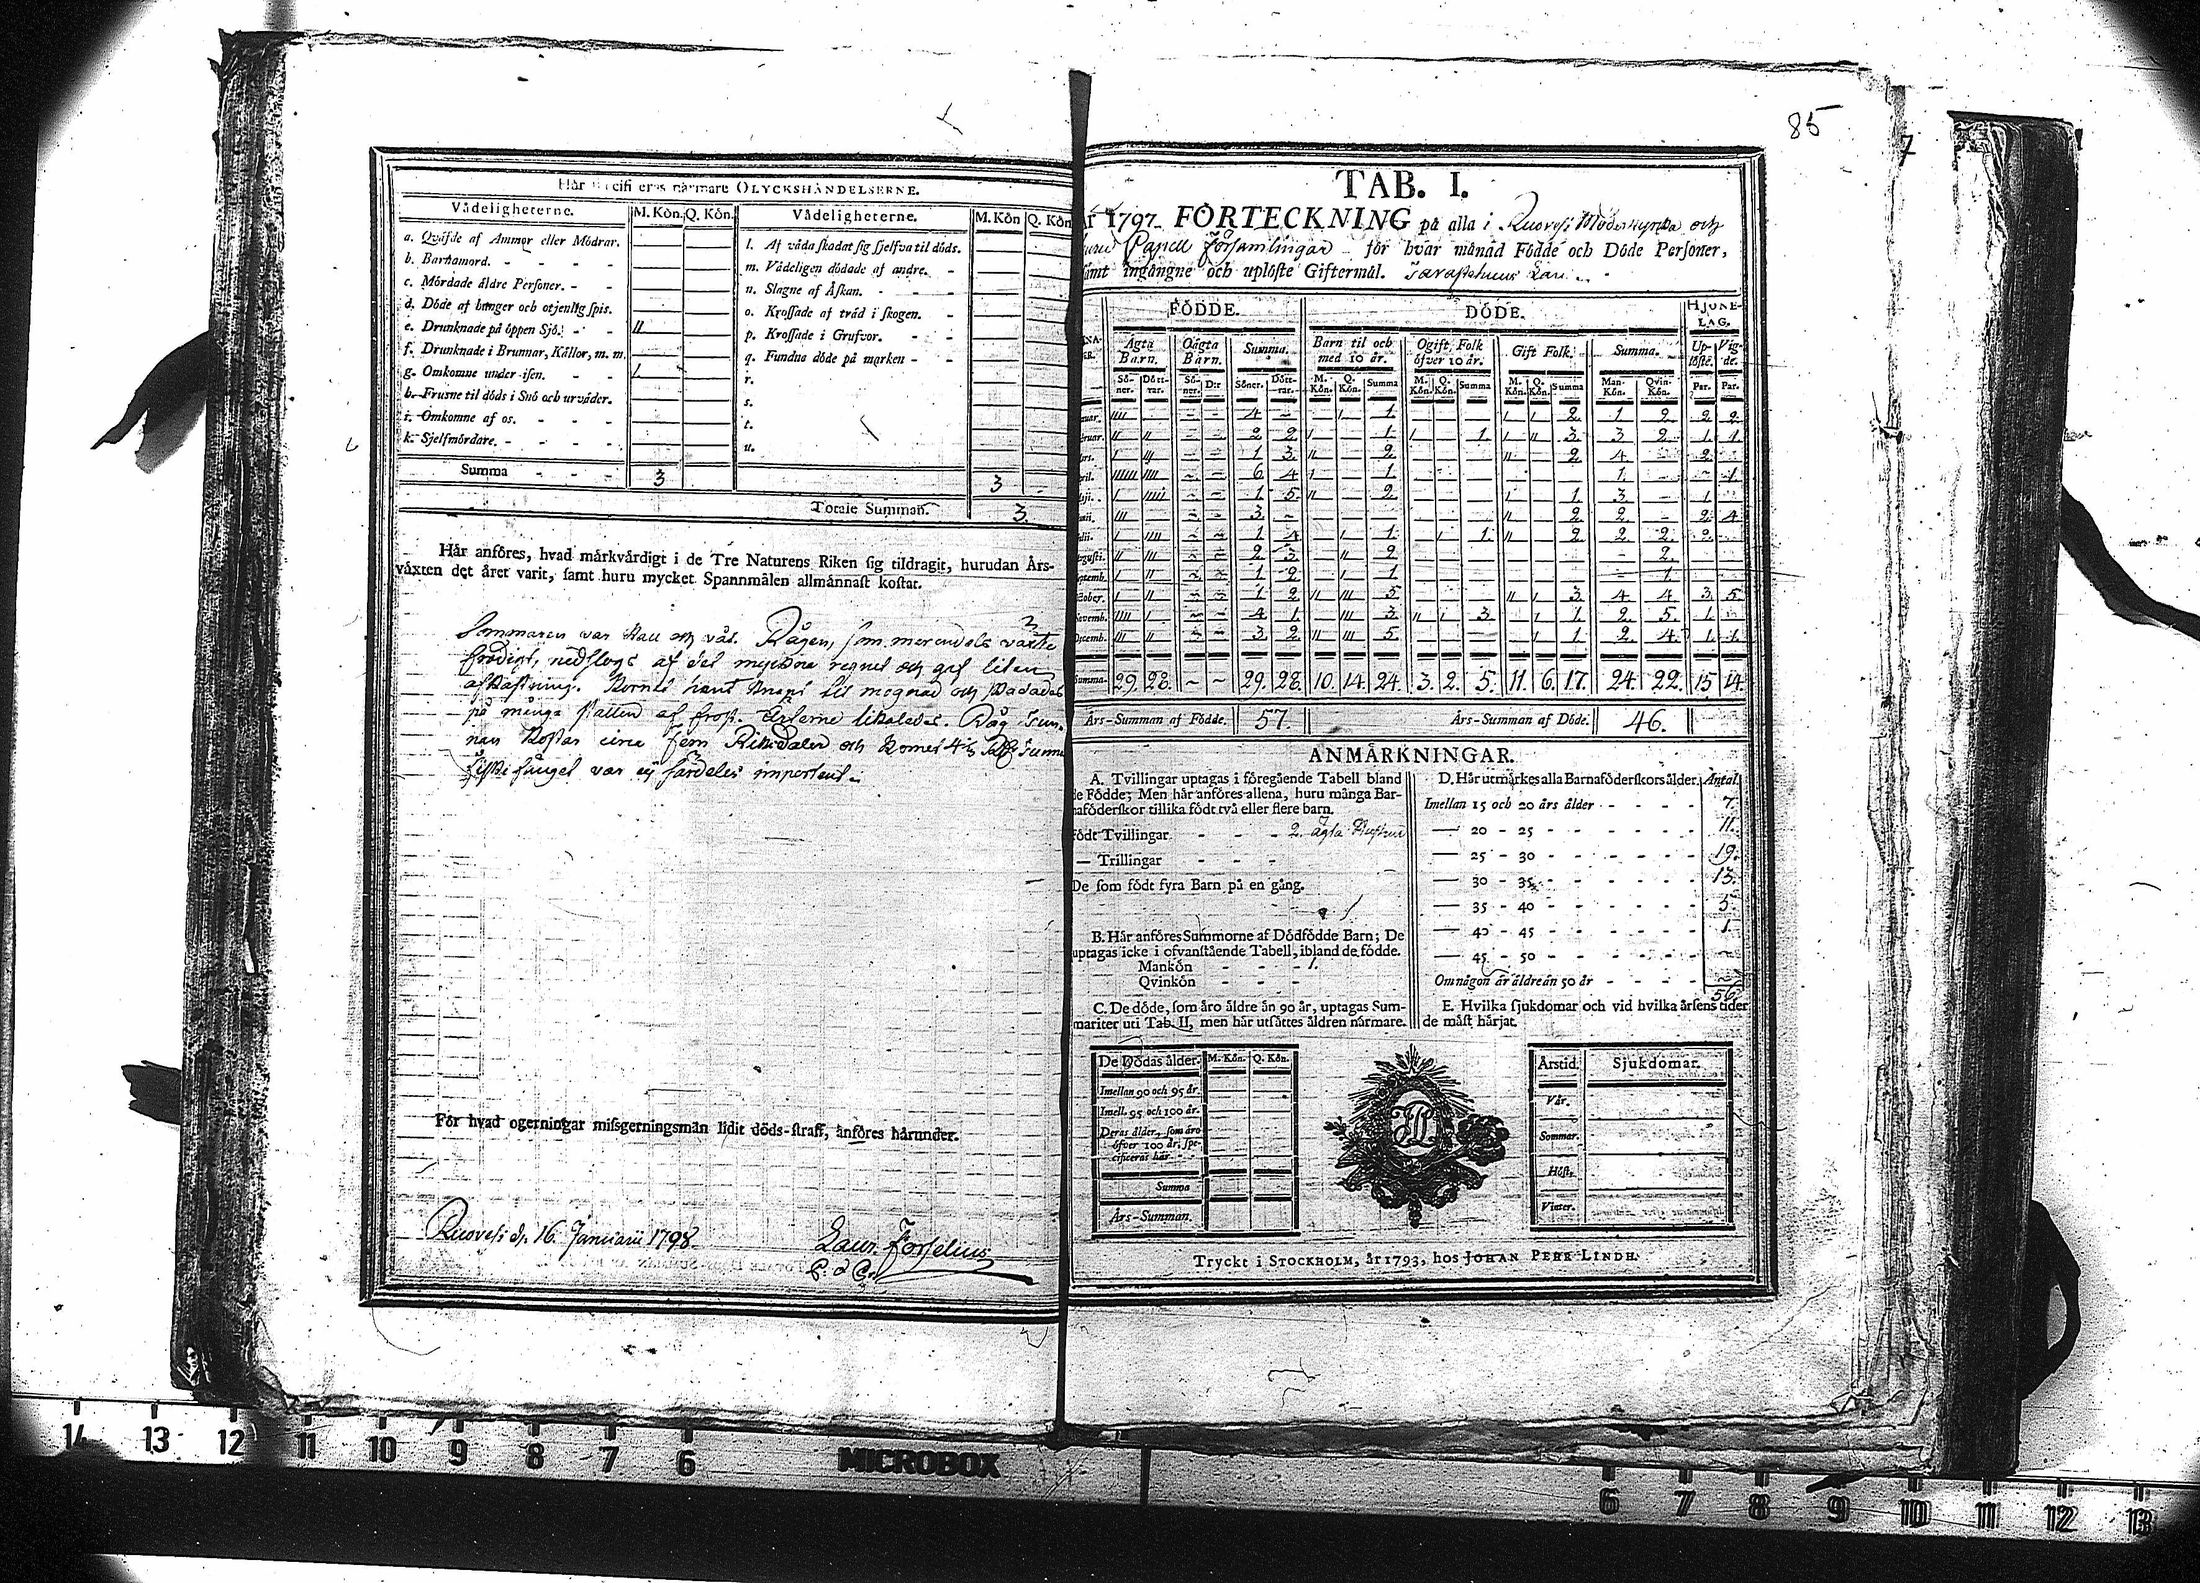 Här specificeras närmare OLYCKSHÄNDELSERNE.
Vådeligheterne. M. Kön. Q. Kön. Vådeligheterne. M. Kön Q. Kön
a. Qväfde af Ammor eller Mödrar.
b. Barnamord. - - - -
c. Mördade äldre Personer. - -
d. Döde af hunger och otjenlig spis.
e. Drunknade på öppen Sjö. - - 11
f. Drunknade i Brunnar, Källor, m. m.
g. Omkomne under isen. - - 1.
h. Frusne til döds i Snö och urväder.
i. Omkomne af os. - - -
k. Sjelfmördare. - - - -
Summa - - - 3
l. Af våda skadat sig sjelfva til döds.
m. Vådeligen dödade af andre. -
n. Slagne af Åskan. - - -
o. Krossade af träd i skogen. -
p. Krossade i Grufvor. - -
q. Fundna döde på marken - -
r.
s.
t.
u.
3
Totale Summan. 3.
Här anföres, hvad märkvärdigt i de Tre Naturens Riken sig tildragit, hurudan Års-
växten det året varit, samt huru mycket Spannmålen allmännast kostat.
Sommaren var kall och våt. Rågen, som merendels växte
frodigt, nedslogs af det myckna regnet och gaf liten
afkastning. Kornet hant knapt til mognad och skadades
på många ställen af frost. Ärterne likaledes. Råg Tun-
nan kostar circa fem Riksdaler och Kornet 4½
fiske fånget var ej särdeles important.
För hvad ogerningar missgerningsmän lidit döds-straff, anföres härunder.
Ruovesi d. 16. Januarii 1798.
Laur. Forselius
P. d C.
85
7
TAB. I.
År 1797. FÖRTECKNING på alla i Ruovesi Moderkyrka och
Capell Församlingar för hvar månad Födde och Döde Personer,
samt ingångne och uplöste Giftermål. Tavastehuus Län.
FÖDDE. DÖDE. HJONE-
LAG.
Ägta Barn. Oägta Barn. Summa. Barn til och med 10 år. Ogift Folk öfver 10 år. Gift Folk. Summa. Up-löste. Vig-de.
Sö-ner. Dött-rar. Sö-ner. D:r Söner. Dött-rar. M. Kön. Q. Kön. Summa M. Kön. Q. Kön. Summa M. Kön. Q. Kön. Summa Man-Kön. Qvin-Kön. Par. Par.
Januar. 1111 - - 4 - 1 1 1 1 2 1 2 2 2
Februar. 11 11 - - 2 2 1 1 1 1 1 11 3 3 2 1 1
Mars. 1 111 - - 1 3 11 2 11 2 4 - 2
April. 111111 1111 - - 6 4 1 1 1 - - 1
Maji. 1 11111 - - 1 5 11 2 1 1 3 - 1
Junii. 111 - - 3 - 11 2 2 - 2 4
Julii. 1 1111 - - 1 4 1 1 1 1 11 2 2 2 2
Augusti. 11 111 - - 2 3 11 2 - 2
Septemb. 1 11 - - 1 2 1 1 1
October. 1 11 - - 1 2 11 111 5 11 1 3 4 4 3 5
Novemb. 1111 1 - - 4 1 111 3 11 1 3 1 1 2 5 1
Decemb. 111 11 - - 3 2 11 111 5 1 1 2 4 1 1
Summa. 29. 28. - - 29. 28. 10. 14. 24. 3. 2. 5. 11. 6. 17. 24. 22. 15 14
Års-Summan af Födde. 57. Års-Summan af Döde. 46.
ANMÄRKNINGAR.
A. Tvillingar uptagas i föregående Tabell bland
de Födde; Men här anföres allena, huru många Bar-
naföderskor tillika födt två eller flere barn.
Födt Tvillingar - - - 2. ägta Hustrur
— Trillingar - - -
De som födt fyra Barn på en gång.
B. Här anföres Summorne af Dödfödde Barn; De
uptagas icke i ofvanstående Tabell, ibland de födde.
Mankön - - - 1.
Qvinkön - - -
C. De döde, som äro äldre än 90 år, uptagas Sum-
mariter uti Tab. II, men här utsättes åldren närmare.
D. Här utmärkes alla Barnaföderskors ålder. Antal
Imellan 15 och 20 års ålder - - - - 7
— 20 - 25 - - - - - - 11.
— 25 - 30 - - - - - - 19.
— 30 - 35 - - - - - - 13.
— 35 - 40 - - - - - - 5.
— 40 - 45 - - - - - - 1.
— 45 - 50 - - - - - - -
Om någon är äldre än 50 år - - - -
56.
E. Hvilka sjukdomar och vid hvilka årsens tider
de mäst härjat.
De Dödas ålder. M. Kön. Q. Kön.
Imellan 90 och 95 år.
Imell. 95 och 100 år.
Deras ålder, som äro
öfver 100 år, spe-
cificeras här - -
Summa
Års-Summan.
Årstid. Sjukdomar.
Vår.
Sommar.
Höst.
Vinter.
Tryckt i STOCKHOLM, år 1793, hos JOHAN PEHR LINDH.
14 13 12 11 10 9 8 7 6 MICROBOX 6 7 8 9 10 11 12 13